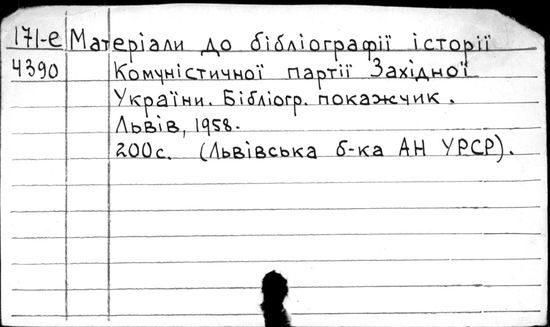 171-е Матеріали до бібліографії історії
4390 Комуністичної партії Західної
України. Бібліогр. покажчик.
Львів, 1958.
200с. (Львівська б-ка АН УРСР).